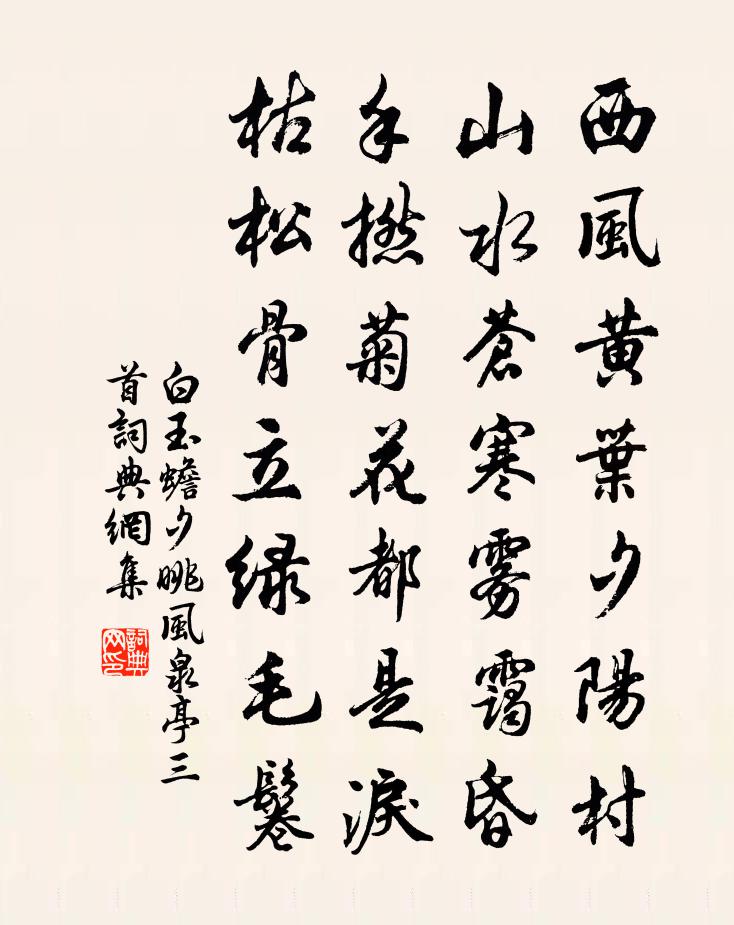 西風黄葉夕陽村
山水蒼寒雾靄昏
手撚菊花都是淚
枯松骨立緑毛鬈
白玉蟾夕眺風泉亭三
首詞典網集
詞典
网印